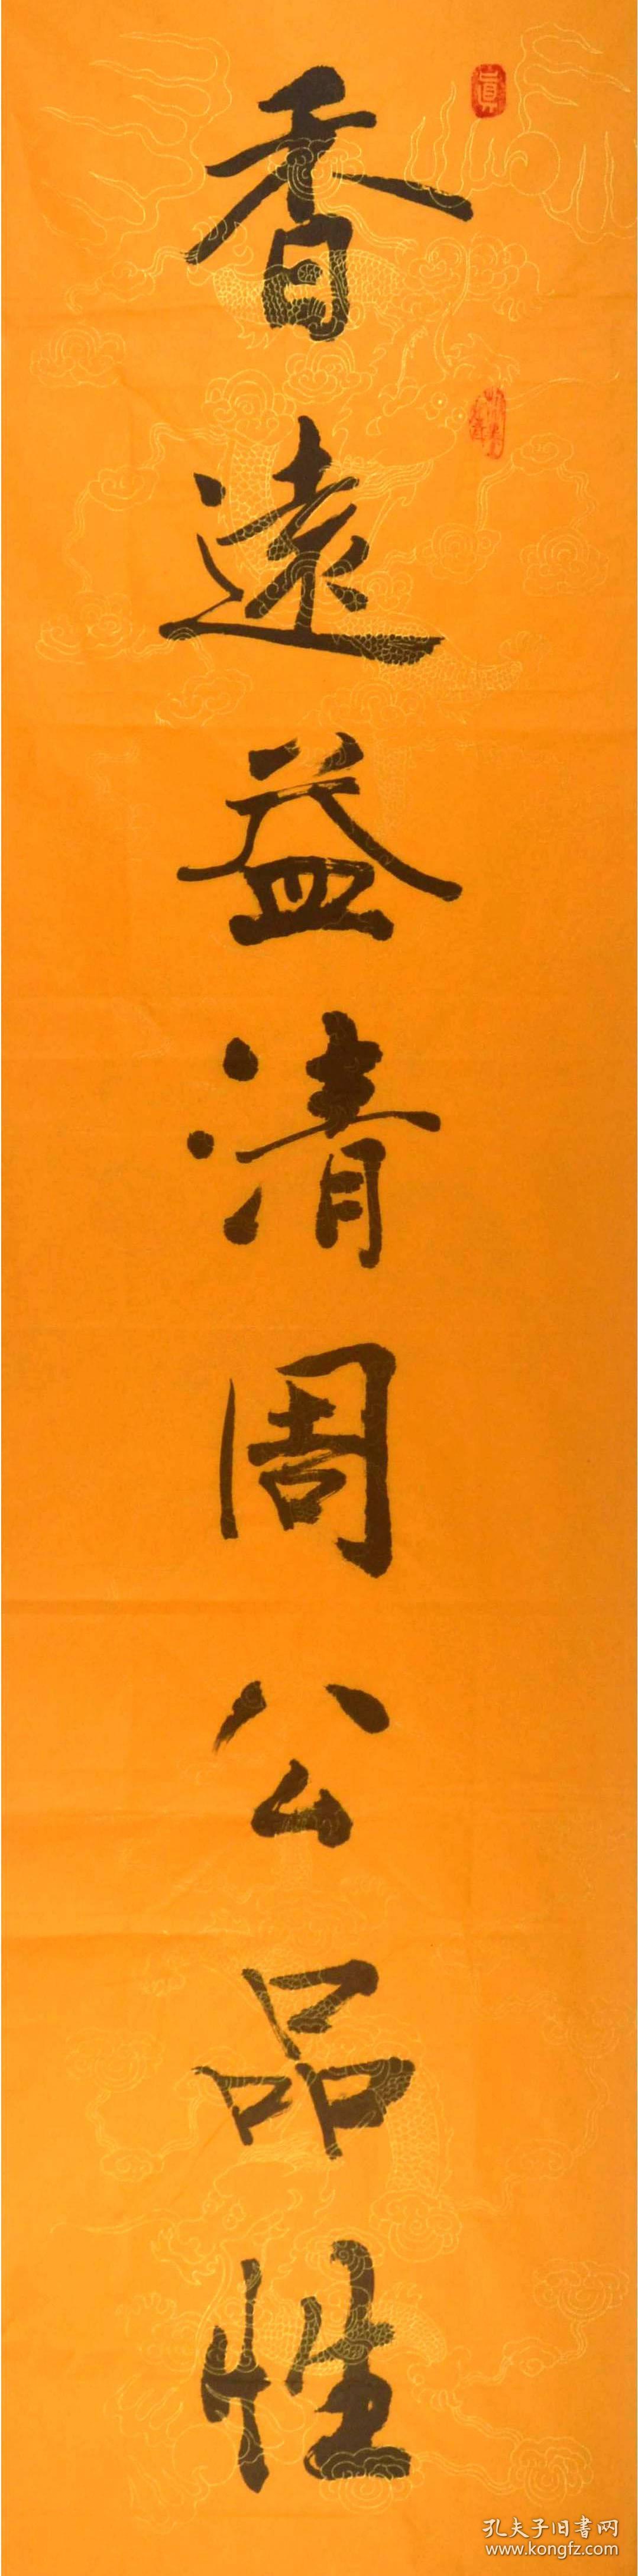 香遠益清周公品性
眞
孔夫子旧書网
www.kongfz.com